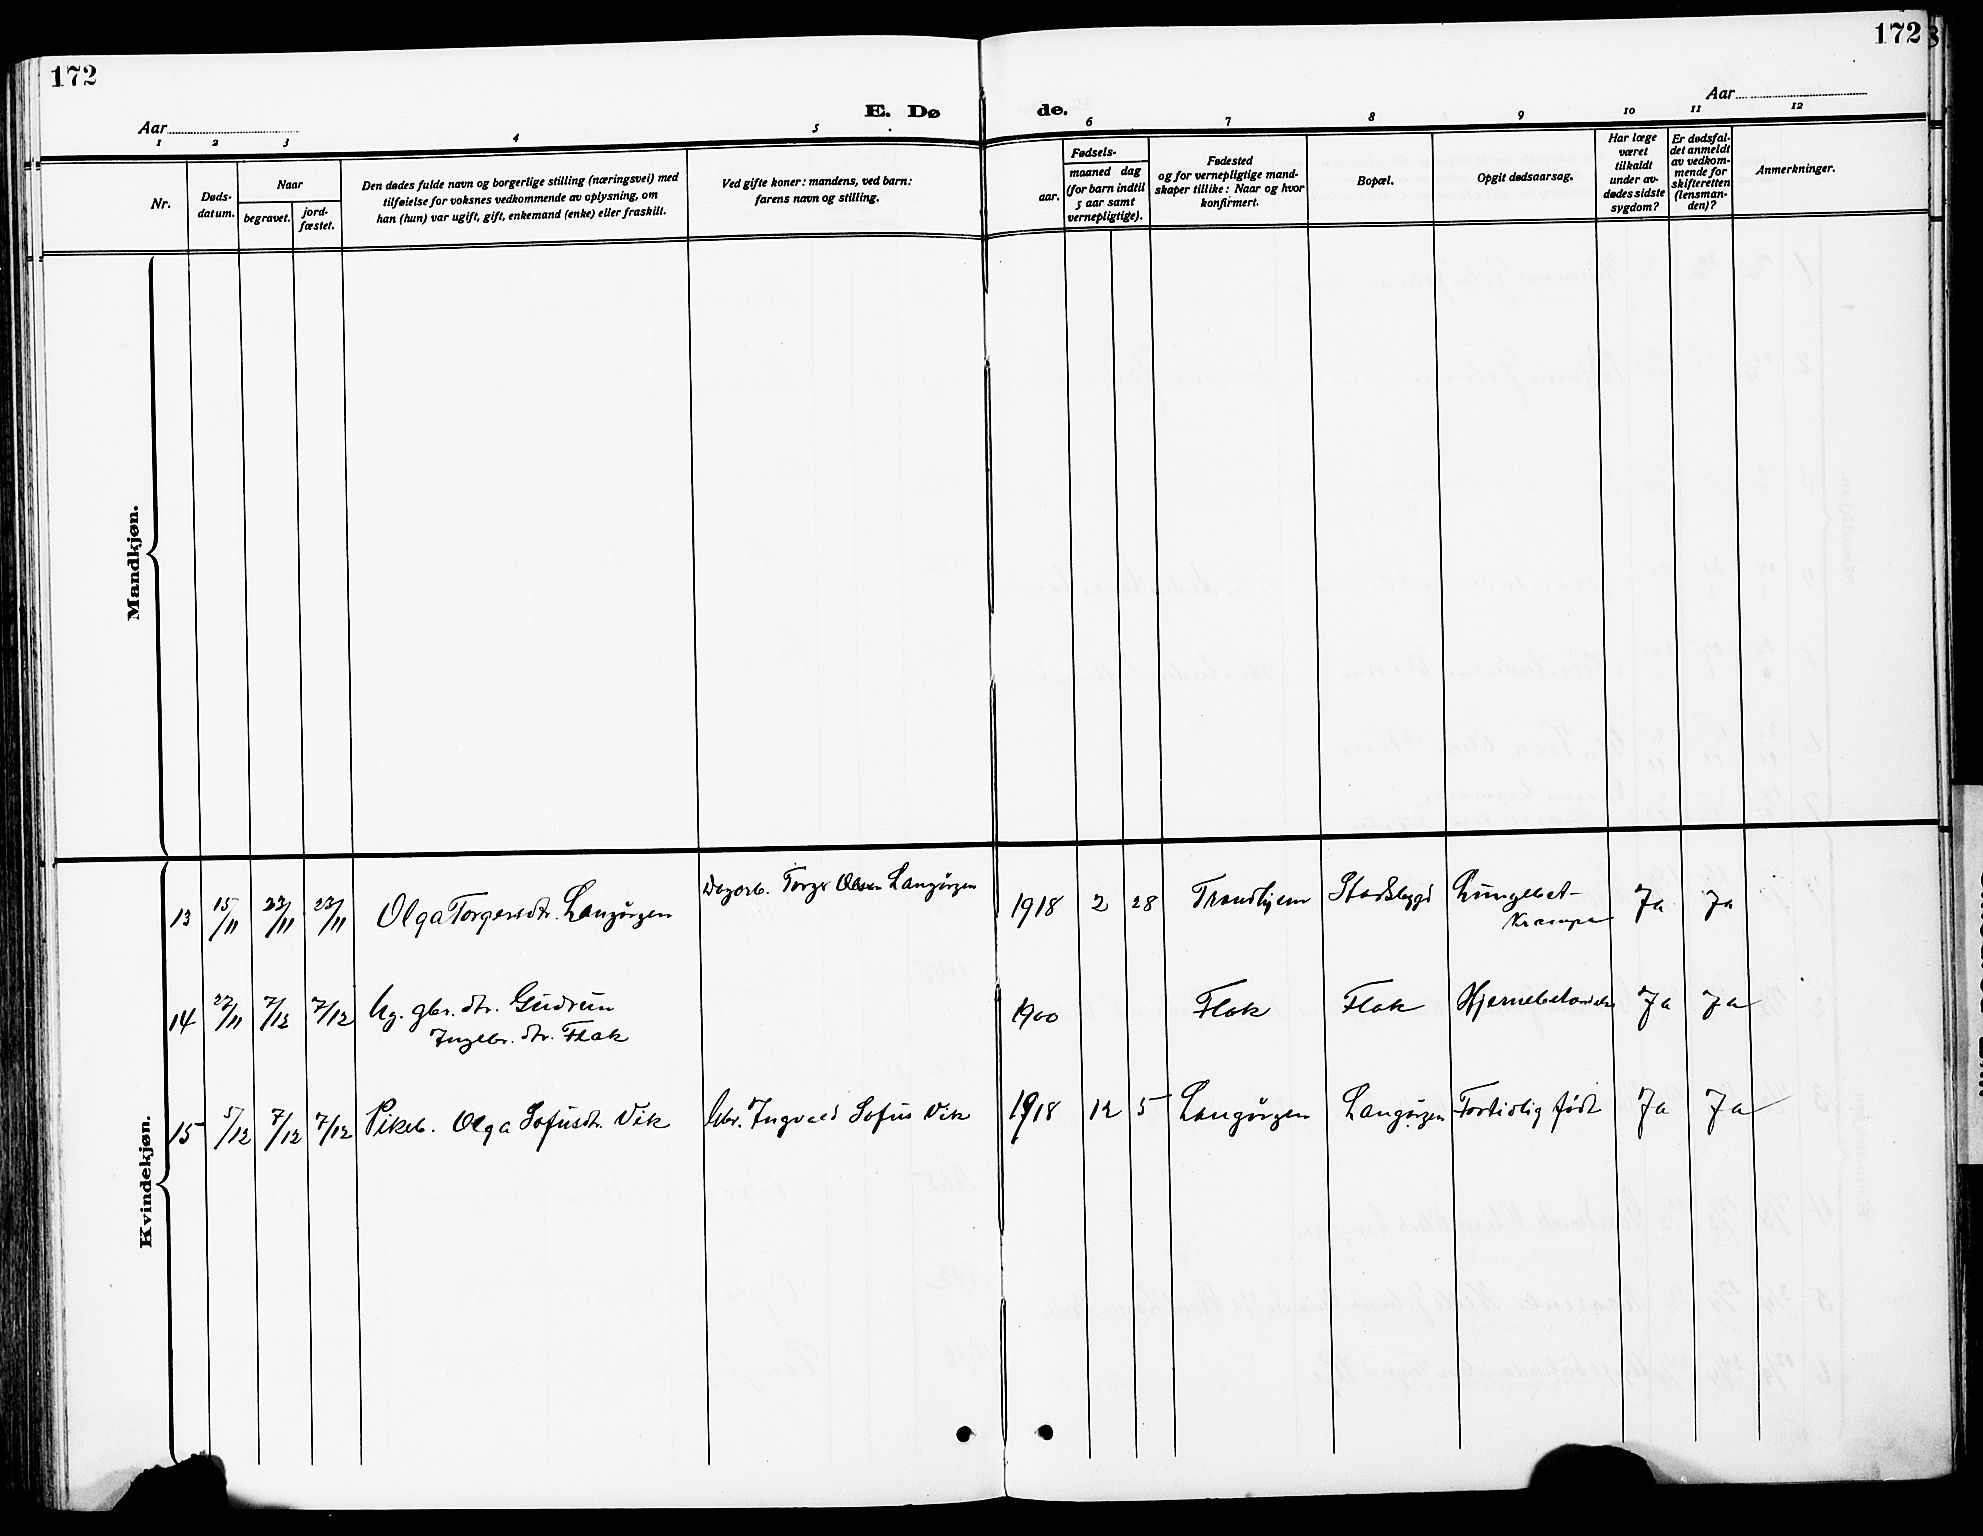 172
172
E. Døde.
Aar
Aar
1 2 3 4 5 6 7 8 9 10 11 12
Nr.
Døds-
datum.
Naar
begravet.
jord-
fæstet.
Den dødes fulde navn og borgerlige stilling (næringsvei) med
tilføielse for voksnes vedkommende av oplysning, om
han (hun) var ugift, gift, enkemand (enke) eller fraskilt.
Ved gifte koner: mandens, ved barn:
farens navn og stilling.
Fødsels-
aar.
maaned dag
(for barn indtil
5 aar samt
vernepligtige).
Fødested
og for vernepligtige mand-
skaper tillike: Naar og hvor
konfirmert.
Bopæl.
Opgit dødsaarsag.
Har læge
været
tilkaldt
under av-
dødes sidste
sygdom?
Er dødsfal-
det anmeldt
av vedkom-
mende for
skifteretten
(lensman-
den)?
Anmerkninger.
Mandkjøn.
Kvindekjøn.
13 15/11 23/11 23/11 Olga Torgersdtr. Langørgen Dagarb. Torger Olsen Langørgen 1918 2 28 Trondhjem Stadsbygd Lungebet-
Krampe Ja Ja
14 27/11 7/12 7/12 Ug. gbr. dtr. Gudrun
Ingebr. dtr. Flak 1900 Flak Flak Hjernebetændelse Ja Ja
15 5/12 7/12 7/12 Pikeb. Olga Sofusdtr. Vik Gbr. Ingvald Sofus Vik 1918 12 5 Langørgen Langørgen Fortidlig født Ja Ja